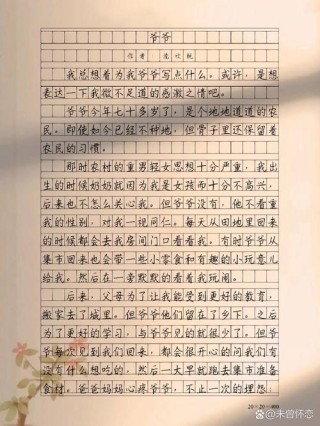 爷爷
作者：沈汶桃
我总想着为我爷爷写点什么。或许，是想
表达一下我微不足道的感激之情吧。
爷爷今年七十多岁了，是个地地道道的农
民。即使如今已经不种地，但骨子里还保留着
农民的习惯。
那时农村的重男轻女思想十分严重，我出
生的时候奶奶就因为我是女孩而十分不高兴，
后来也不怎么关心我。但爷爷没有，他不看重
我的性别，对我一视同仁。每天从田地里回来
的时候都会去我房间门口看看我。有时爷爷从
集市回来也会带一些小零食和有趣的小玩意儿
给我。然后在一旁默默的看着我玩闹。
后来，父母为了让我能受到更好的教育，
搬家去了城里。但爷爷他们留在了乡下。之后
为了更好的学习，与爷爷见的就很少了。但爷
爷每次见到我们回来，都会很开心的问我们有
没有什么想吃的，然后一大早就跑去集市准备
食材。爸爸妈妈心疼爷爷，不止一次的埋怨：
20×20=400
@未曾怀恋